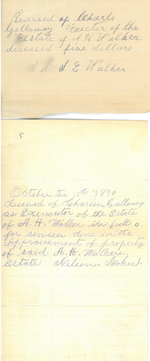 Received of Charls
Galloway Exector of the
Estate of A H Walker
deceased five dollars
S E Walker
8
October the 11th 1890
Received of Charles Galloway
as Executor of the Estate
of A. H. Walker in full
for services done in the
appraisement of property
of said A. H. Walkers
Estate Nelson